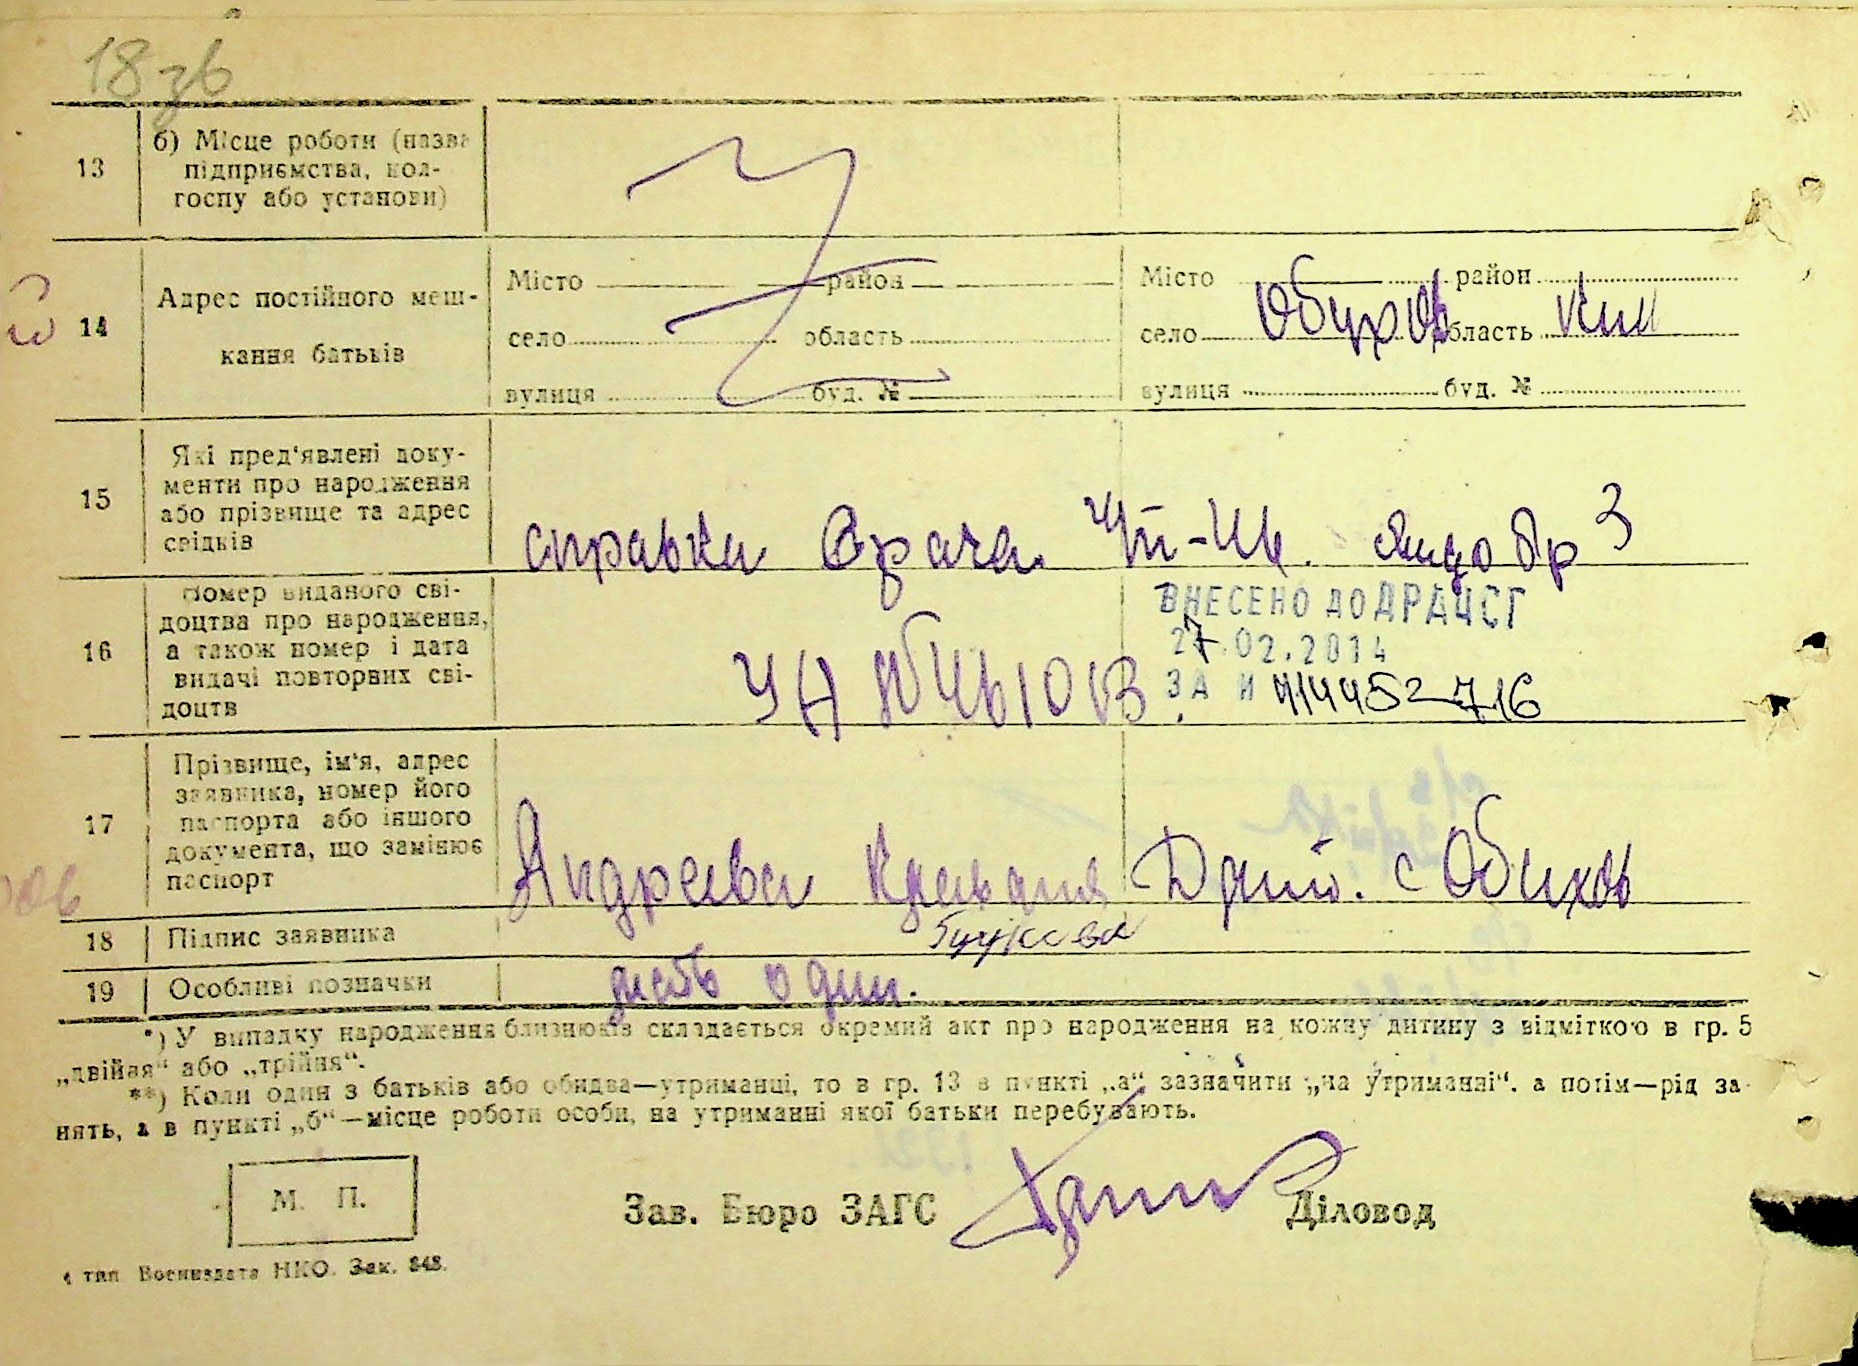 18 зв
13
б) Місце роботи (назва
підприємства, кол-
госпу або установи)
14
Адрес постійного меш-
кання батьків
Місто район
село область
вулиця буд. №
Місто район
село Обухов область Киї
вулиця буд. №
15
Які пред'явлені доку-
менти про народження
або прізвище та адрес
свідків
справка Врача
16
Номер виданого сві-
доцтва про народження,
а також номер і дата
видачі повторних сві-
доцтв
УН
ВНЕСЕНО ДО ДРАЦСГ
27.02.2014
ЗА № 414452716
17
Прізвище, ім'я, адрес
заявника, номер його
паспорта або іншого
документа, що замінює
паспорт
Андреева с Обухов
18
Підпис заявника
19
Особливі позначки
один.
*) У випадку народження близнюків складається окремий акт про народження на кожну дитину з відміткою в гр. 5
„двійня“ або „трійня“.
**) Коли один з батьків або обидва—утриманці, то в гр. 13 в пункті „а“ зазначити „на утриманні“, а потім—рід за-
нять, а в пункті „б“—місце роботи особи, на утриманні якої батьки перебувають.
М. П.
Зав. Бюро ЗАГС
Діловод
4 тип. Воениздата НКО. Зак. 848.